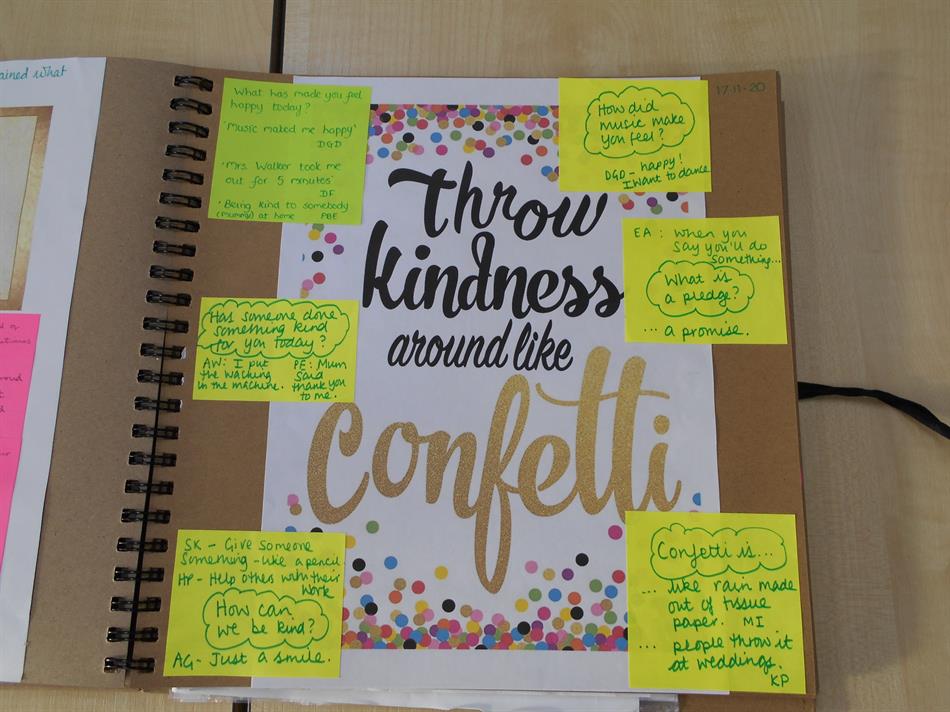 ained what
17-11-20
What has made you feel
happy today?
'Music maked me happy'
DGD
'Mrs. Walker took me
out for 5 minutes'
DF
'Being kind to somebody
(mummy) at home PBE
How did
music make
you feel?
DGD - happy!
I want to dance
throw
kindness
around like
Confetti
EA : when you
say you'll do
something...
What is
a pledge?
... a promise.
Has someone done
something kind
for you today?
AW: I put
the waching
in the machine.
PE: Mum
said
thank you
to me.
SK - Give someone
something - like a pencil.
HP - Help others with their
work
How can
we be kind?
AG - Just a smile.
Confetti is...
... like rain made
out of tissue
paper. MI
... people throw it
at weddings.
KP